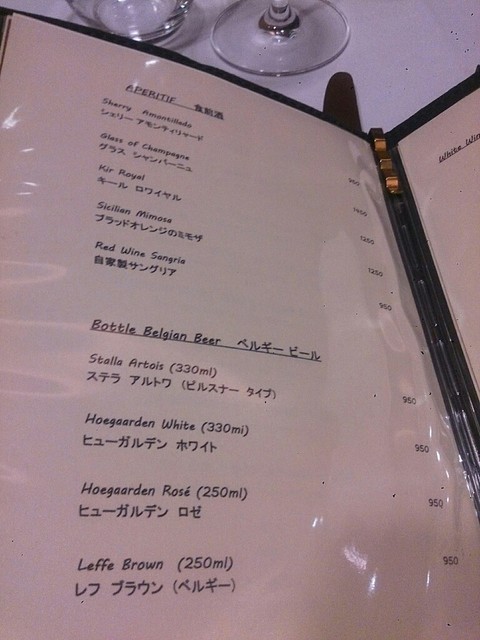 APERITIF 食前酒
Sherry Amontillado
シェリー アモンティリャード
950
Glass of Champagne
グラス シャンパーニュ
1450
Kir Royal
キール ロワイヤル
1250
Sicilian Mimosa
ブラッドオレンジのミモザ
1250
Red Wine Sangria
自家製サングリア
950
Bottle Belgian Beer ベルギー ビール
Stalla Artois (330ml)
ステラ アルトワ (ピルスナー タイプ)
950
Hoegaarden White (330ml)
ヒューガルデン ホワイト
950
Hoegaarden Rosé (250ml)
ヒューガルデン ロゼ
950
Leffe Brown (250ml)
レフ ブラウン (ベルギー)
950
White Win